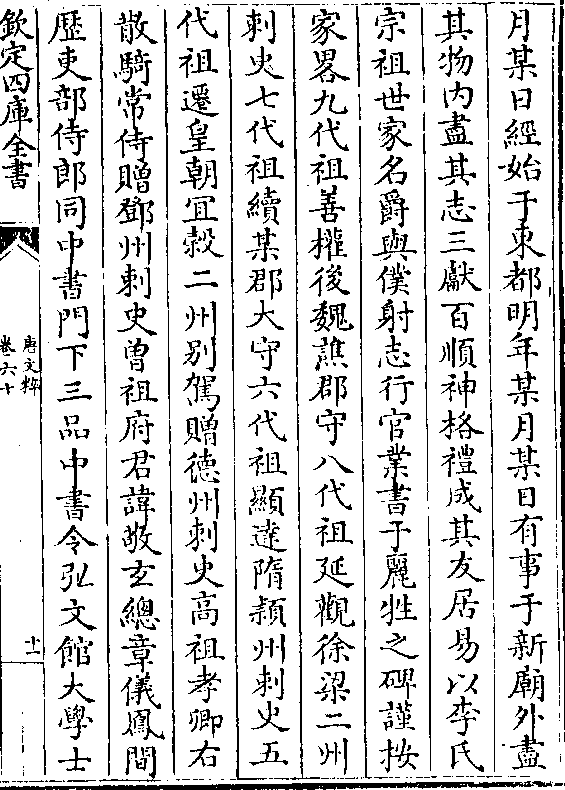 月某日經始于東都明年某月某日有事于新廟外盡
其物内盡其志三獻百順神格禮成其友居易以李氏
宗祖世家名爵與僕射志行官業書于麗牲之碑謹按
家畧九代祖善權後魏譙郡守八代祖延觀徐梁二州
刺史七代祖續某郡大守六代祖顯達隋潁州刺史五
代祖遷皇朝冝榖二州别駕贈德州刺史高祖孝卿右
散騎常侍贈鄧州刺史曽祖府君諱敬玄總章儀鳳間
歴吏部侍郎同中書門下三品中書令弘文館大學士
欽定四庫全書
唐文粹
卷六十
十一